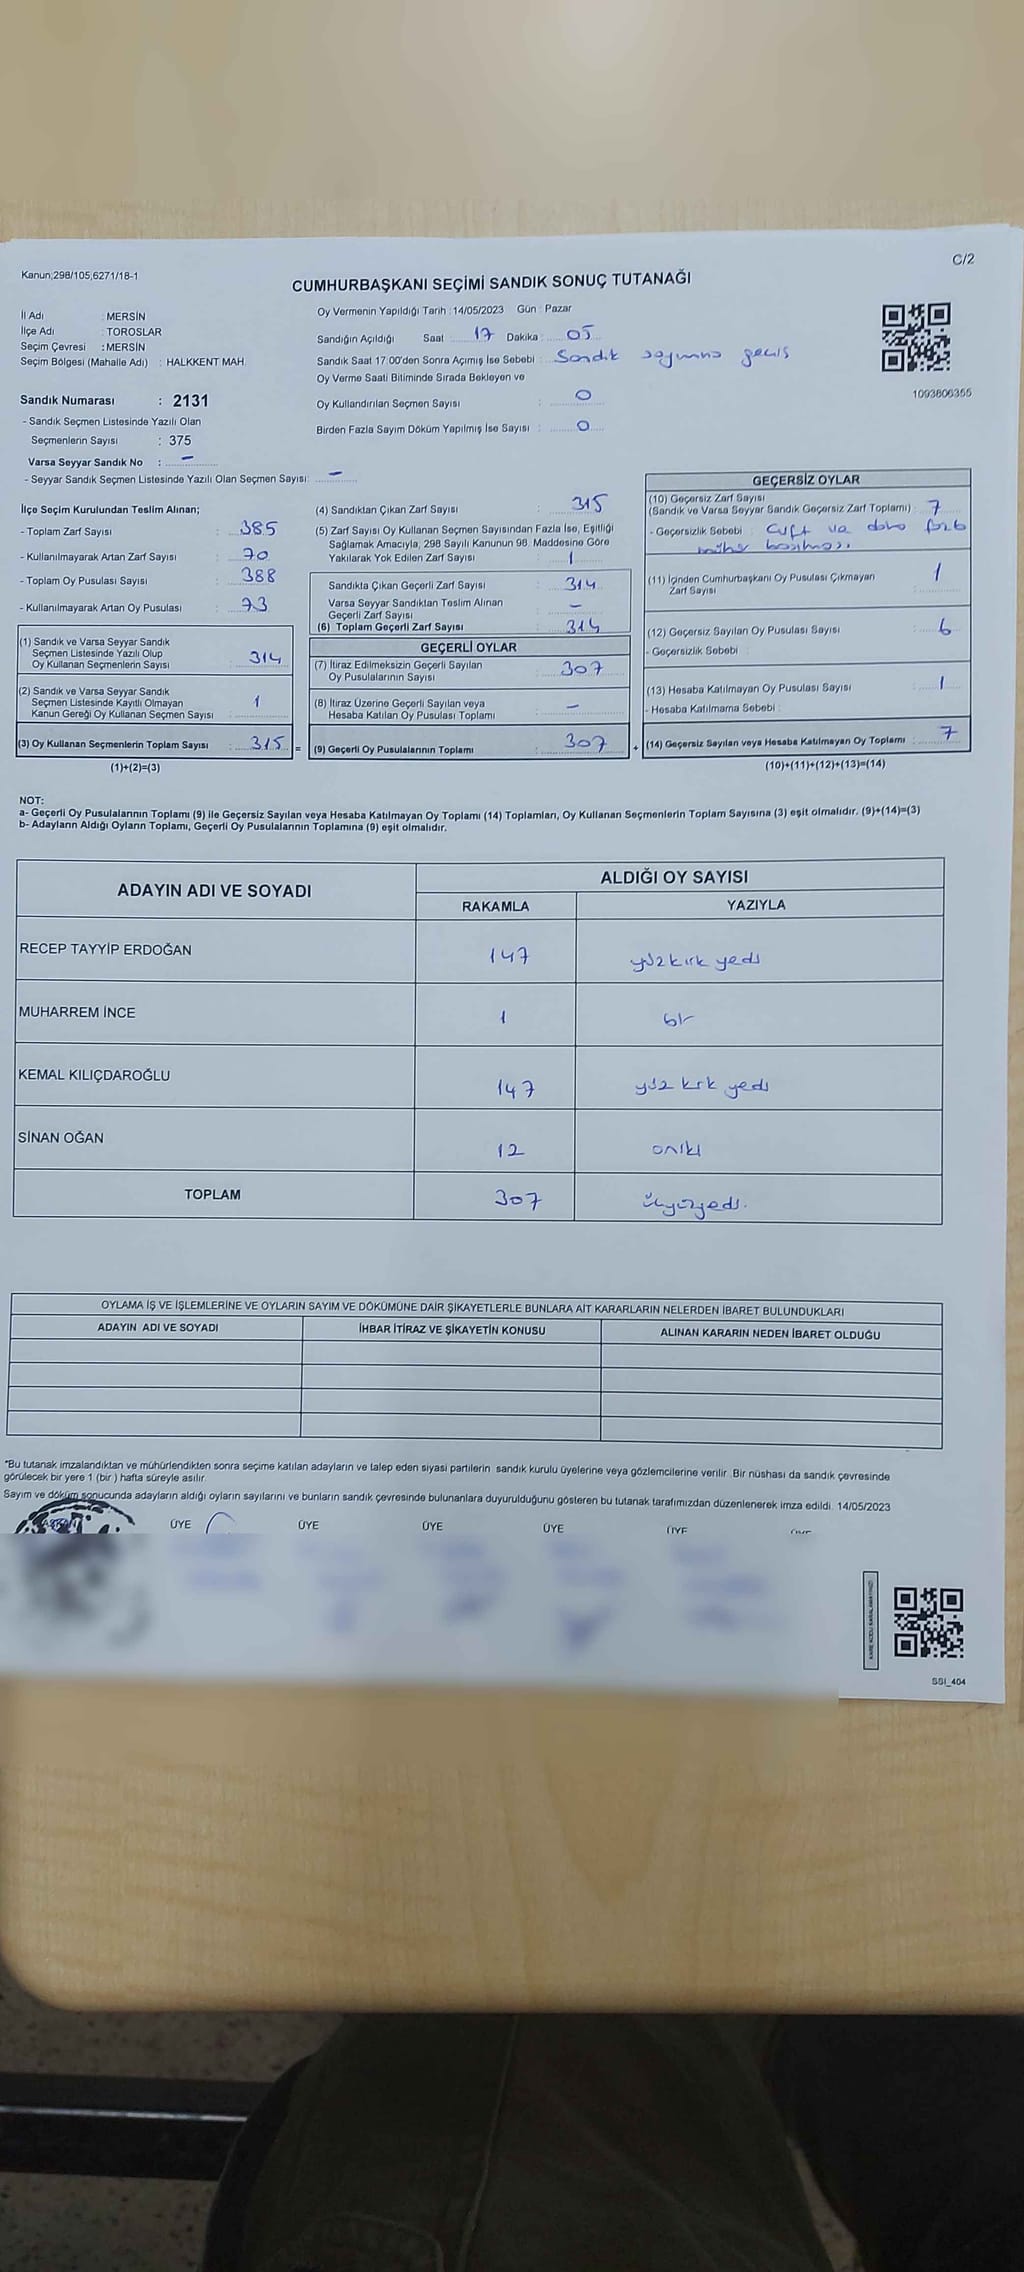 Kanun;298/105,6271/18-1
C/2
CUMHURBAŞKANI SEÇİMİ SANDIK SONUÇ TUTANAĞI
İl Adı : MERSİN
İlçe Adı : TOROSLAR
Seçim Çevresi : MERSİN
Seçim Bölgesi (Mahalle Adı) : HALKKENT MAH.
Sandık Numarası : 2131
- Sandık Seçmen Listesinde Yazılı Olan
Seçmenlerin Sayısı : 375
Varsa Seyyar Sandık No : -
- Seyyar Sandık Seçmen Listesinde Yazılı Olan Seçmen Sayısı: -
Oy Vermenin Yapıldığı Tarih : 14/05/2023 Gün : Pazar
Sandığın Açıldığı Saat 17 Dakika : 05
Sandık Saat 17:00'den Sonra Açımış İse Sebebi : Sandık sayımına geçiş
Oy Verme Saati Bitiminde Sırada Bekleyen ve
Oy Kullandırılan Seçmen Sayısı : 0
Birden Fazla Sayım Döküm Yapılmış İse Sayısı : 0
1093806355
İlçe Seçim Kurulundan Teslim Alınan;
- Toplam Zarf Sayısı : 385
- Kullanılmayarak Artan Zarf Sayısı : 70
- Toplam Oy Pusulası Sayısı : 388
- Kullanılmayarak Artan Oy Pusulası : 73
(1) Sandık ve Varsa Seyyar Sandık
Seçmen Listesinde Yazılı Olup
Oy Kullanan Seçmenlerin Sayısı : 314
(2) Sandık ve Varsa Seyyar Sandık
Seçmen Listesinde Kayıtlı Olmayan
Kanun Gereği Oy Kullanan Seçmen Sayısı 1
(3) Oy Kullanan Seçmenlerin Toplam Sayısı : 315 =
(1)+(2)=(3)
(4) Sandıktan Çıkan Zarf Sayısı : 315
(5) Zarf Sayısı Oy Kullanan Seçmen Sayısından Fazla İse, Eşitliği
Sağlamak Amacıyla, 298 Sayılı Kanunun 98. Maddesine Göre
Yakılarak Yok Edilen Zarf Sayısı : 1
Sandıkta Çıkan Geçerli Zarf Sayısı : 314
Varsa Seyyar Sandıktan Teslim Alınan
Geçerli Zarf Sayısı : -
(6) Toplam Geçerli Zarf Sayısı : 314
GEÇERLİ OYLAR
(7) İtiraz Edilmeksizin Geçerli Sayılan
Oy Pusulalarının Sayısı : 307
(8) İtiraz Üzerine Geçerli Sayılan veya
Hesaba Katılan Oy Pusulası Toplamı : -
(9) Geçerli Oy Pusulalarının Toplamı : 307 +
GEÇERSİZ OYLAR
(10) Geçersiz Zarf Sayısı
(Sandık ve Varsa Seyyar Sandık Geçersiz Zarf Toplamı) : 7
- Geçersizlik Sebebi : Çift ve daha fazla
mühür basılması
(11) İçinden Cumhurbaşkanı Oy Pusulası Çıkmayan
Zarf Sayısı : 1
(12) Geçersiz Sayılan Oy Pusulası Sayısı : 6
- Geçersizlik Sebebi :
(13) Hesaba Katılmayan Oy Pusulası Sayısı : 1
- Hesaba Katılmama Sebebi :
(14) Geçersiz Sayılan veya Hesaba Katılmayan Oy Toplamı : 7
(10)+(11)+(12)+(13)=(14)
NOT:
a- Geçerli Oy Pusulalarının Toplamı (9) ile Geçersiz Sayılan veya Hesaba Katılmayan Oy Toplamı (14) Toplamları, Oy Kullanan Seçmenlerin Toplam Sayısına (3) eşit olmalıdır. (9)+(14)=(3)
b- Adayların Aldığı Oyların Toplamı, Geçerli Oy Pusulalarının Toplamına (9) eşit olmalıdır.
ADAYIN ADI VE SOYADI
ALDIĞI OY SAYISI
RAKAMLA YAZIYLA
RECEP TAYYİP ERDOĞAN 147 yüz kırk yedi
MUHARREM İNCE 1 bir
KEMAL KILIÇDAROĞLU 147 yüz kırk yedi
SİNAN OĞAN 12 oniki
TOPLAM 307 üçyüzyedi.
OYLAMA İŞ VE İŞLEMLERİNE VE OYLARIN SAYIM VE DÖKÜMÜNE DAİR ŞİKAYETLERLE BUNLARA AİT KARARLARIN NELERDEN İBARET BULUNDUKLARI
ADAYIN ADI VE SOYADI İHBAR İTİRAZ VE ŞİKAYETİN KONUSU ALINAN KARARIN NEDEN İBARET OLDUĞU
*Bu tutanak imzalandıktan ve mühürlendikten sonra seçime katılan adayların ve talep eden siyasi partilerin sandık kurulu üyelerine veya gözlemcilerine verilir. Bir nüshası da sandık çevresinde
görülecek bir yere 1 (bir ) hafta süreyle asılır.
Sayım ve döküm sonucunda adayların aldığı oyların sayılarını ve bunların sandık çevresinde bulunanlara duyurulduğunu gösteren bu tutanak tarafımızdan düzenlenerek imza edildi. 14/05/2023
BAŞKAN ÜYE ÜYE ÜYE ÜYE ÜYE ÜYE
SSI_404